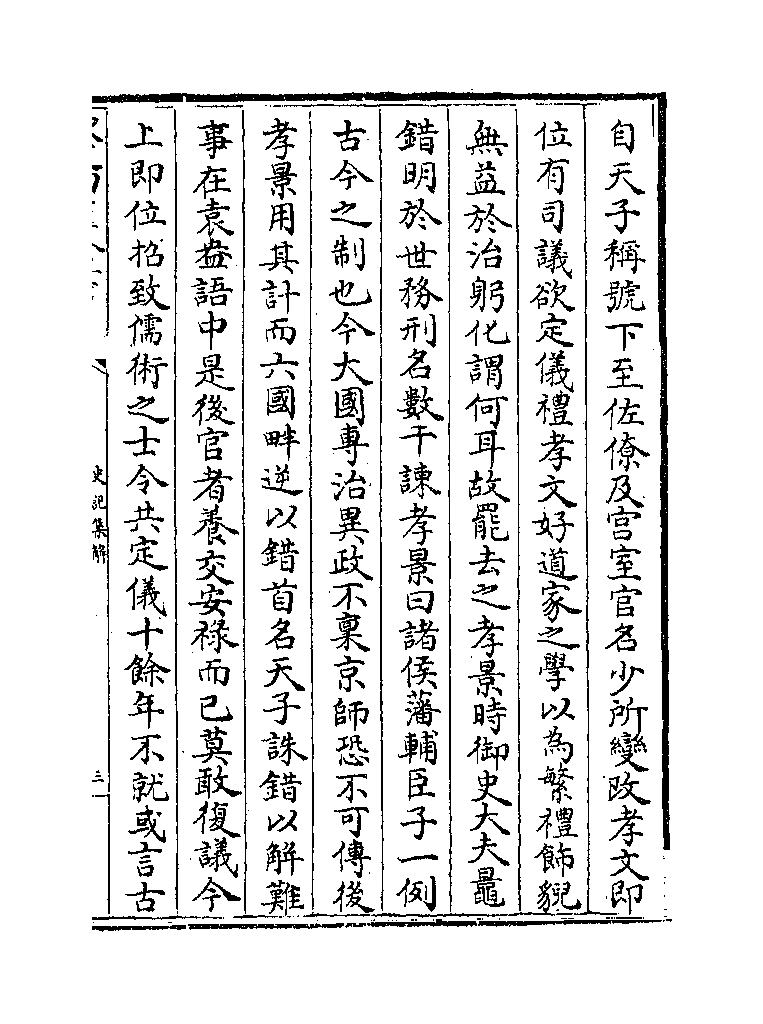 自天子稱號下至佐僚及宫室官名少所變改孝文即
位有司議欲定儀禮孝文好道家之學以為繁禮飾貎
無益於治躬化謂何耳故罷去之孝景時御史大夫鼂
錯明於世務刑名數干諫孝景曰諸侯藩輔臣子一例
古今之制也今大國專治異政不禀京師恐不可傳後
孝景用其計而六國畔逆以錯首名天子誅錯以解難
事在袁盎語中是後官者養交安禄而已莫敢復議今
上即位招致儒術之士令共定儀十餘年不就或言古
史記集解
三